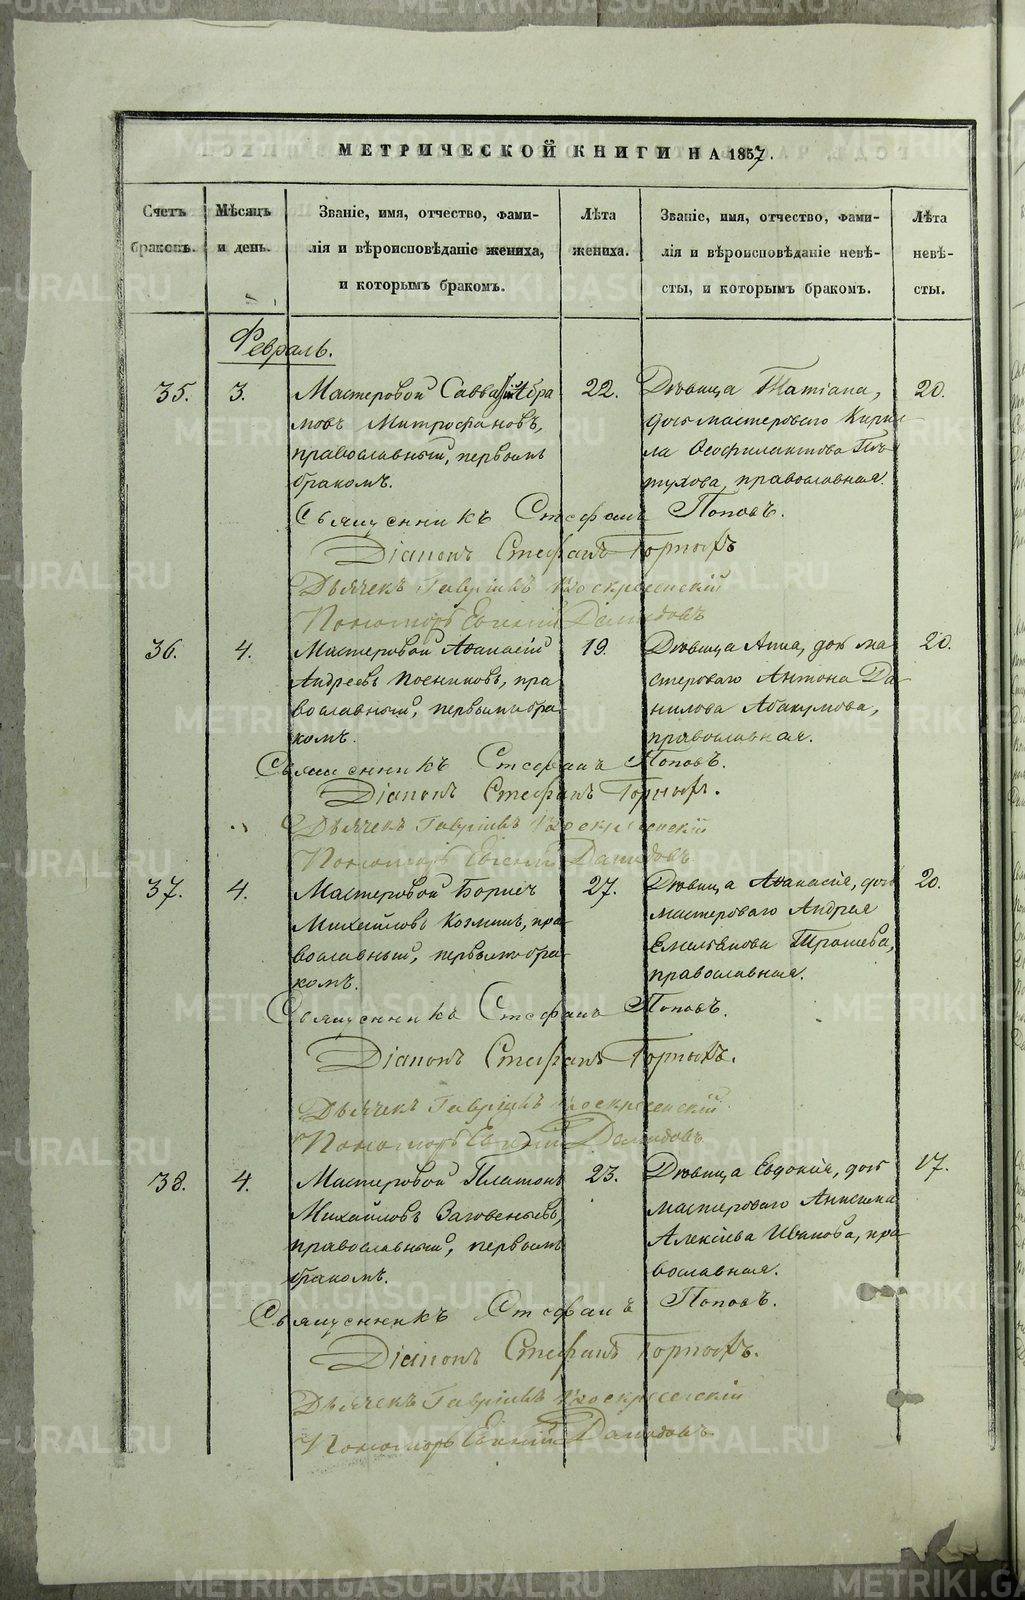 МЕТРИЧЕСКОЙ КНИГИ НА 1857.
Счетъ браковъ.
Мѣсяцъ и день.
Званіе, имя, отчество, фами-
лія и вѣроисповѣданіе жениха,
и которымъ бракомъ.
Лѣта
жениха.
Званіе, имя, отчество, фами-
лія и вѣроисповѣданіе невѣ-
сты, и которымъ бракомъ.
Лѣта
невѣ-
сты.
Февраль.
35.
3.
Мастеровой Савва Абра
мовъ Митрофановъ,
православный, первымъ
бракомъ.
22.
Дѣвица Татіана,
дочь мастероваго Кирил
ла Ѳеофилактова Пѣ
тухова, православная.
20.
Священникъ Стефанъ Поповъ.
Діаконъ Стефанъ
Дьячекъ Гавріилъ Воскресенскій
Пономарь Евгеній Давидовъ
36.
4.
Мастеровой Аѳанасій
Андреевъ Посниковъ, пра
вославный, первымъ бра
комъ.
19.
Дѣвица Анна, дочь ма
стероваго Антона Да
нилова Абакумова,
православная.
20.
Священникъ Стефанъ Поповъ.
Діаконъ Стефанъ
Дьячекъ Гавріилъ Воскресенскій
Пономарь Евгеній Давидовъ
37.
4.
Мастеровой Борисъ
Михайловъ Козминъ, пра
вославный, первымъ бра
комъ.
27.
Дѣвица Аѳанасія, дочь
мастероваго Андрея
Емельянова Трошева,
православная.
20.
Священникъ Стефанъ Поповъ.
Діаконъ Стефанъ
Дьячекъ Гавріилъ Воскресенскій
Пономарь Евгеній Давидовъ
38.
4.
Мастеровой Платонъ
Михайловъ Заговеньевъ,
православный, первымъ
бракомъ.
23.
Дѣвица Евдокія, дочь
мастероваго Анисима
Алексіева Иванова, пра
вославная.
17.
Священникъ Стефанъ Поповъ.
Діаконъ Стефанъ
Дьячекъ Гавріилъ Воскресенскій
Пономарь Евгеній Давидовъ
METRIKI.GASO-URAL.RU